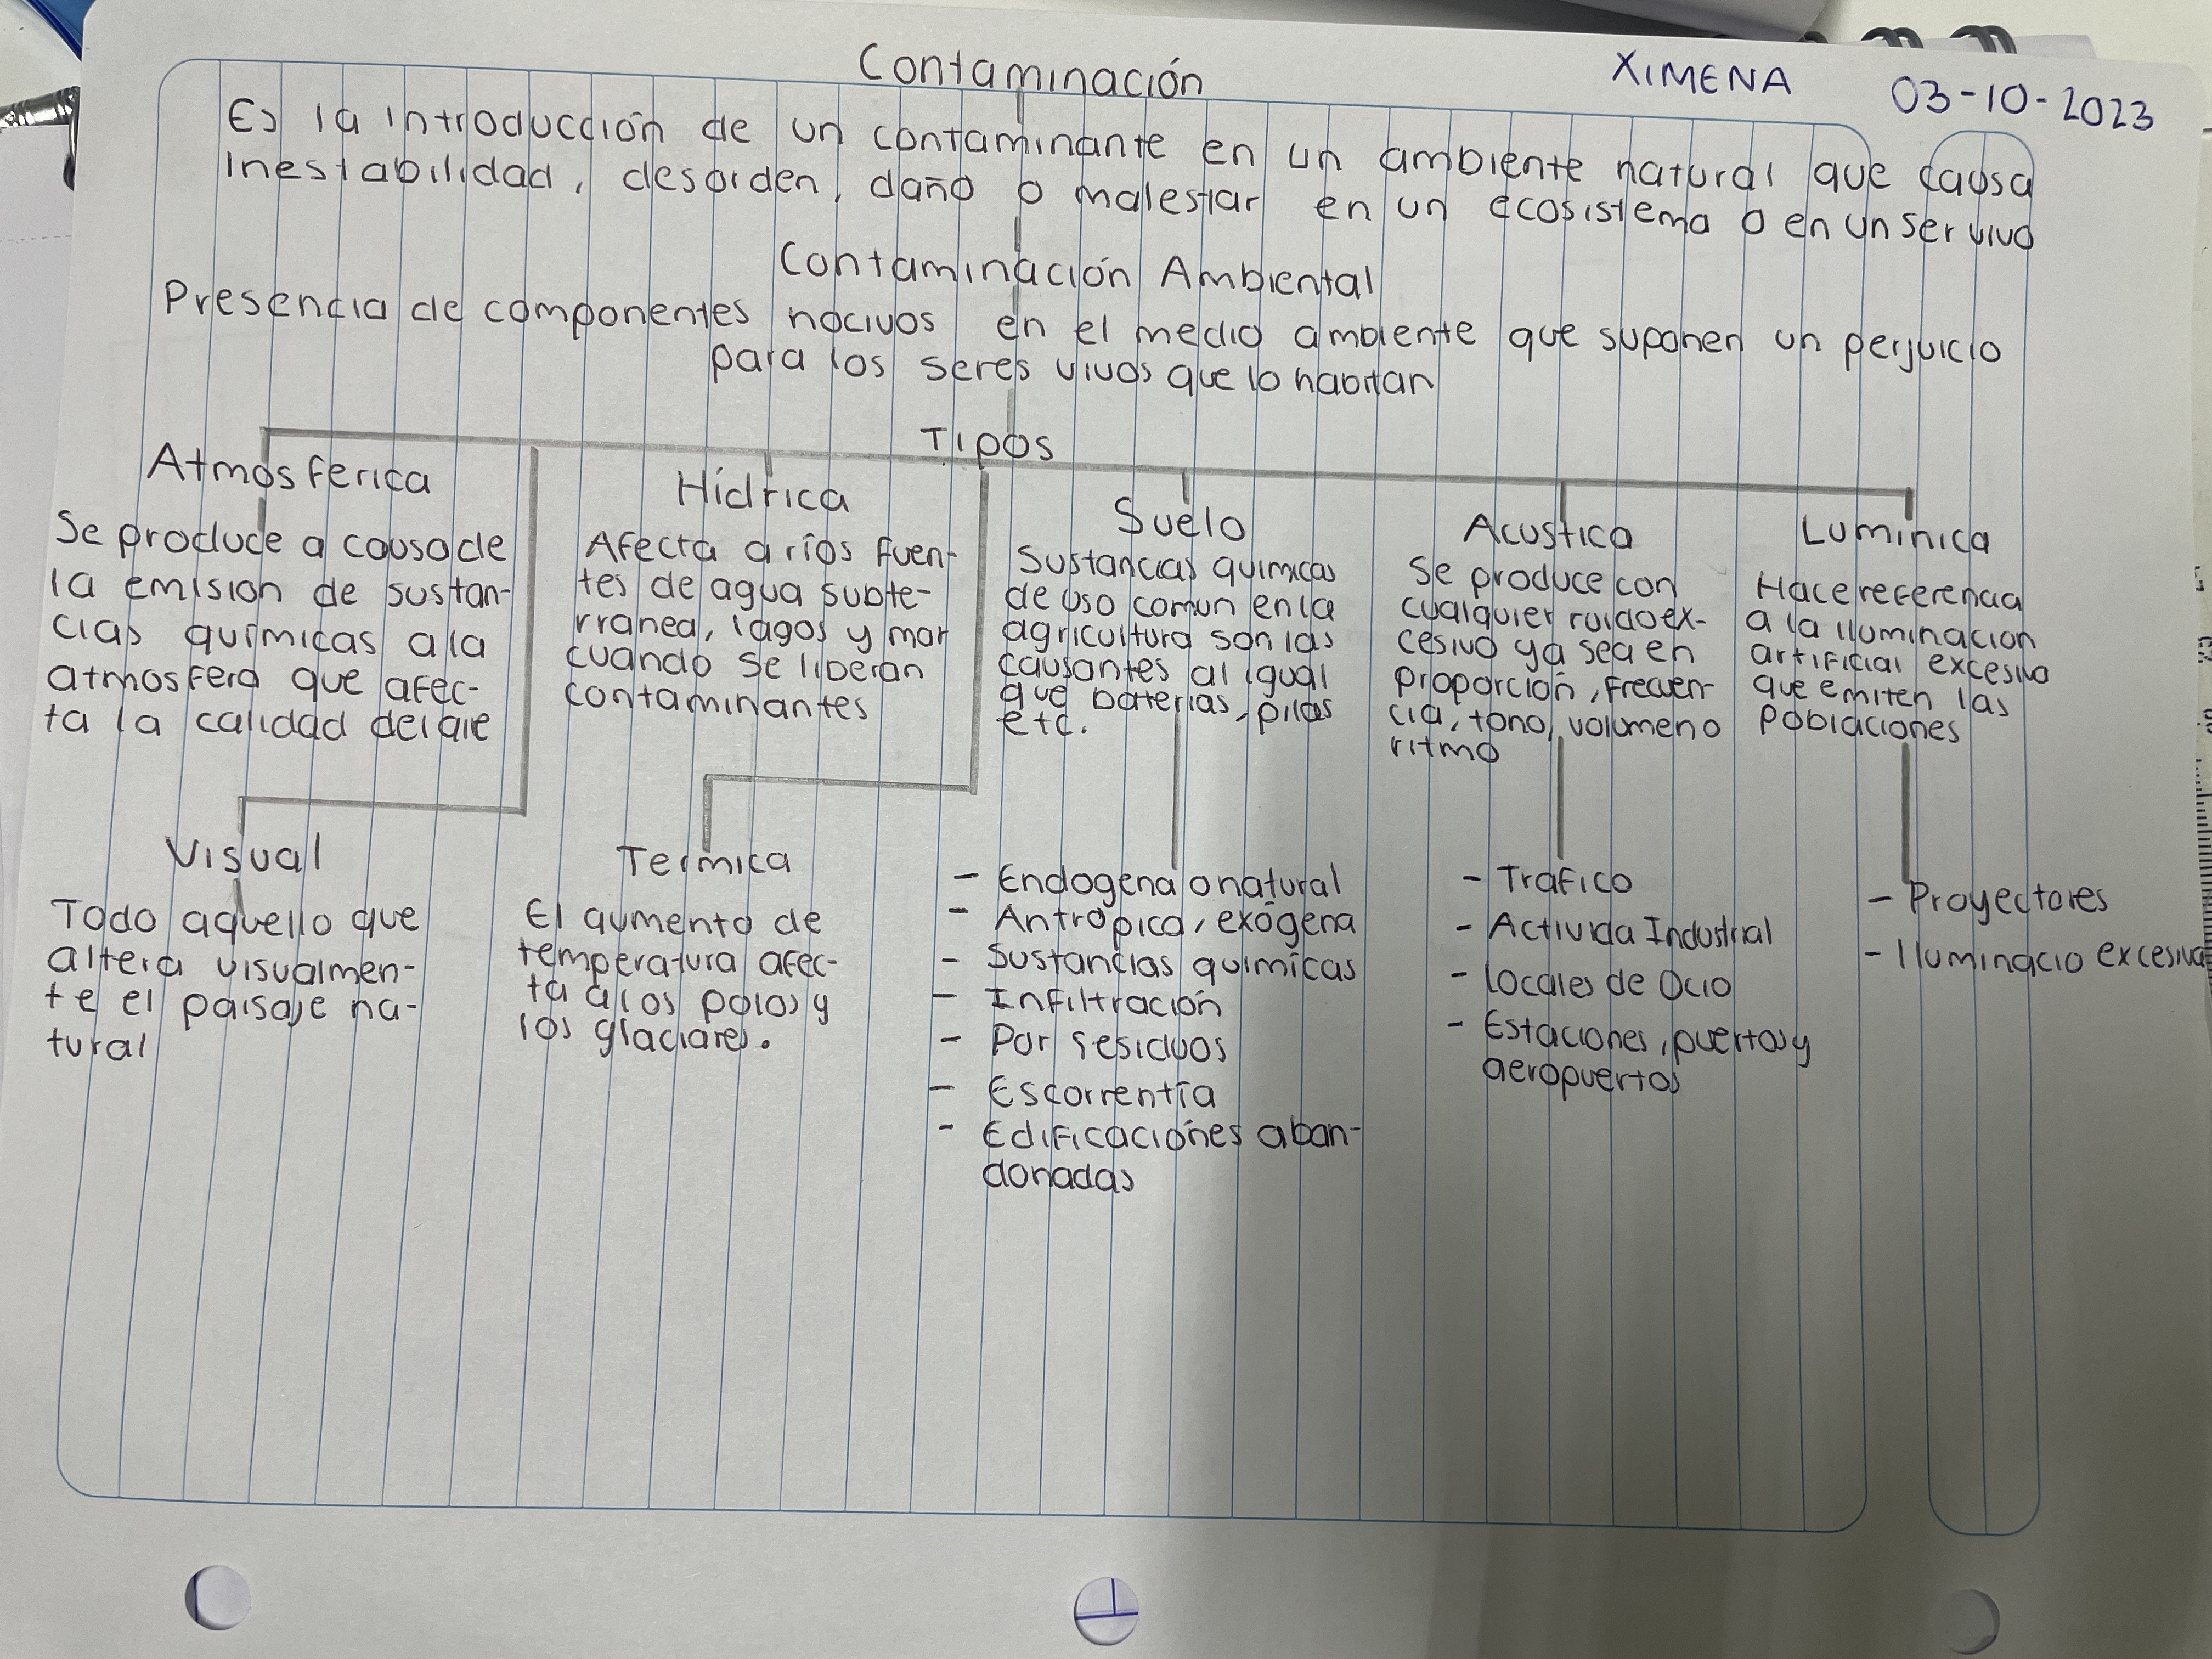 Contaminación
XIMENA
03-10-2023
Es la introducción de un contaminante en un ambiente natural que causa
inestabilidad, desorden, daño o malestar en un ecosistema o en un ser vivo
Contaminación Ambiental
Presencia de componentes nocivos en el medio ambiente que suponen un perjuicio
para los seres vivos que lo habitan
Tipos
Atmosferica
Se produce a causa de
la emision de sustan-
cias químicas a la
atmosfera que afec-
ta la calidad del aie
Hídrica
Afecta a ríos fuen-
tes de agua subte-
rranea, lagos y mar
cuando se liberan
contaminantes
Suelo
Sustancias quimicas
de uso comun en la
agricultura son las
causantes al igual
que baterias, pilas
etc.
Acustica
Se produce con
cualquier ruido ex-
cesivo ya sea en
proporción, frecuen-
cia, tono, volumen o
ritmo
Luminica
Hace referencia
a la iluminacion
artificial excesiva
que emiten las
poblaciones
Visual
Todo aquello que
altera visualmen-
te el paisaje na-
tural
Termica
El aumento de
temperatura afec-
ta a los polos y
los glaciares.
- Endogena o natural
- Antropica, exógena
- Sustancias quimicas
- Infiltración
- Por residuos
- Escorrentía
- Edificaciones aban-
donadas
- Trafico
- Activida Industrial
- Locales de Ocio
- Estaciones, puertos y
aeropuertos
- Proyectores
- Iluminacio excesiva